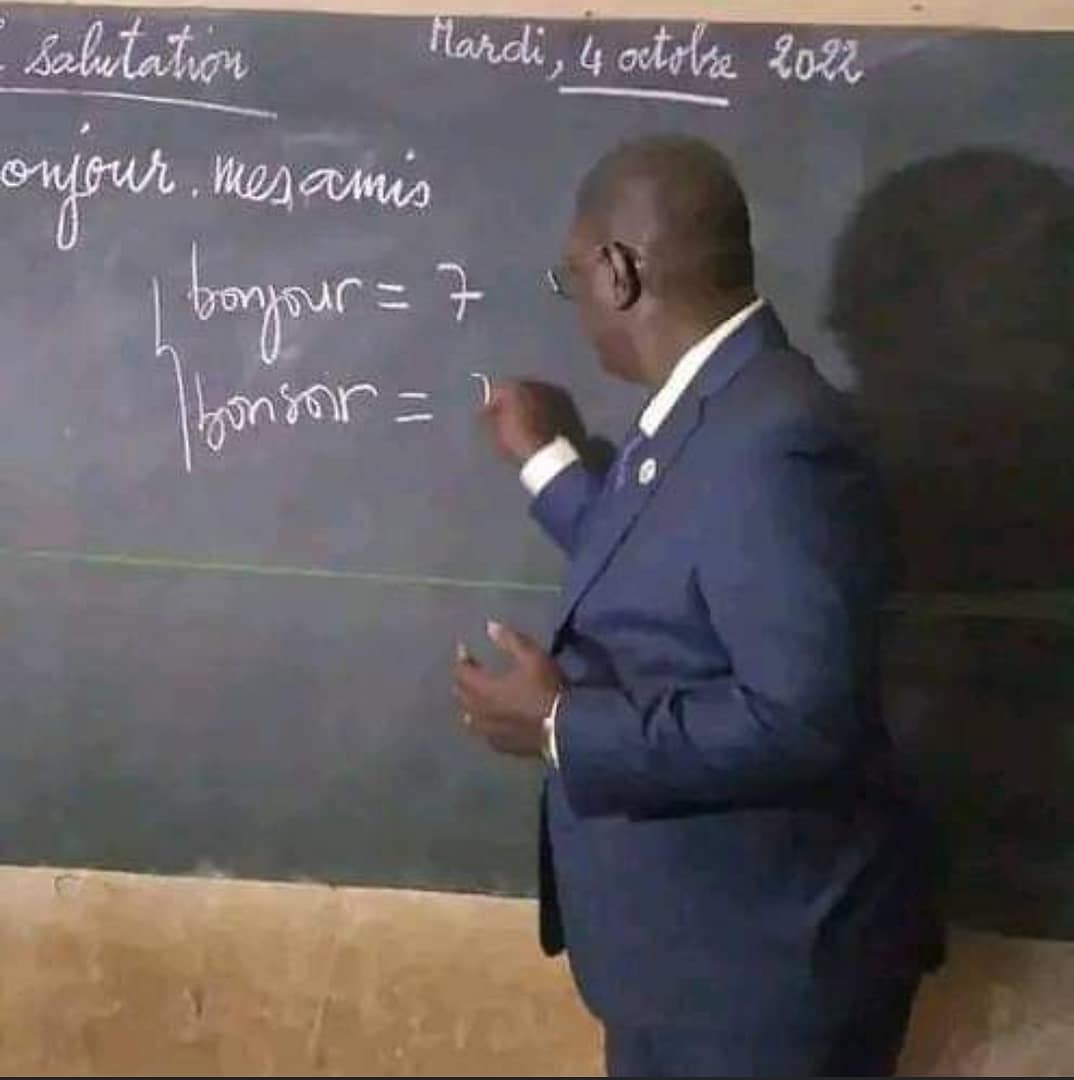 salutation
Mardi, 4 octobre 2022
onjour. mes amis
bonjour = 7
bonsoir =